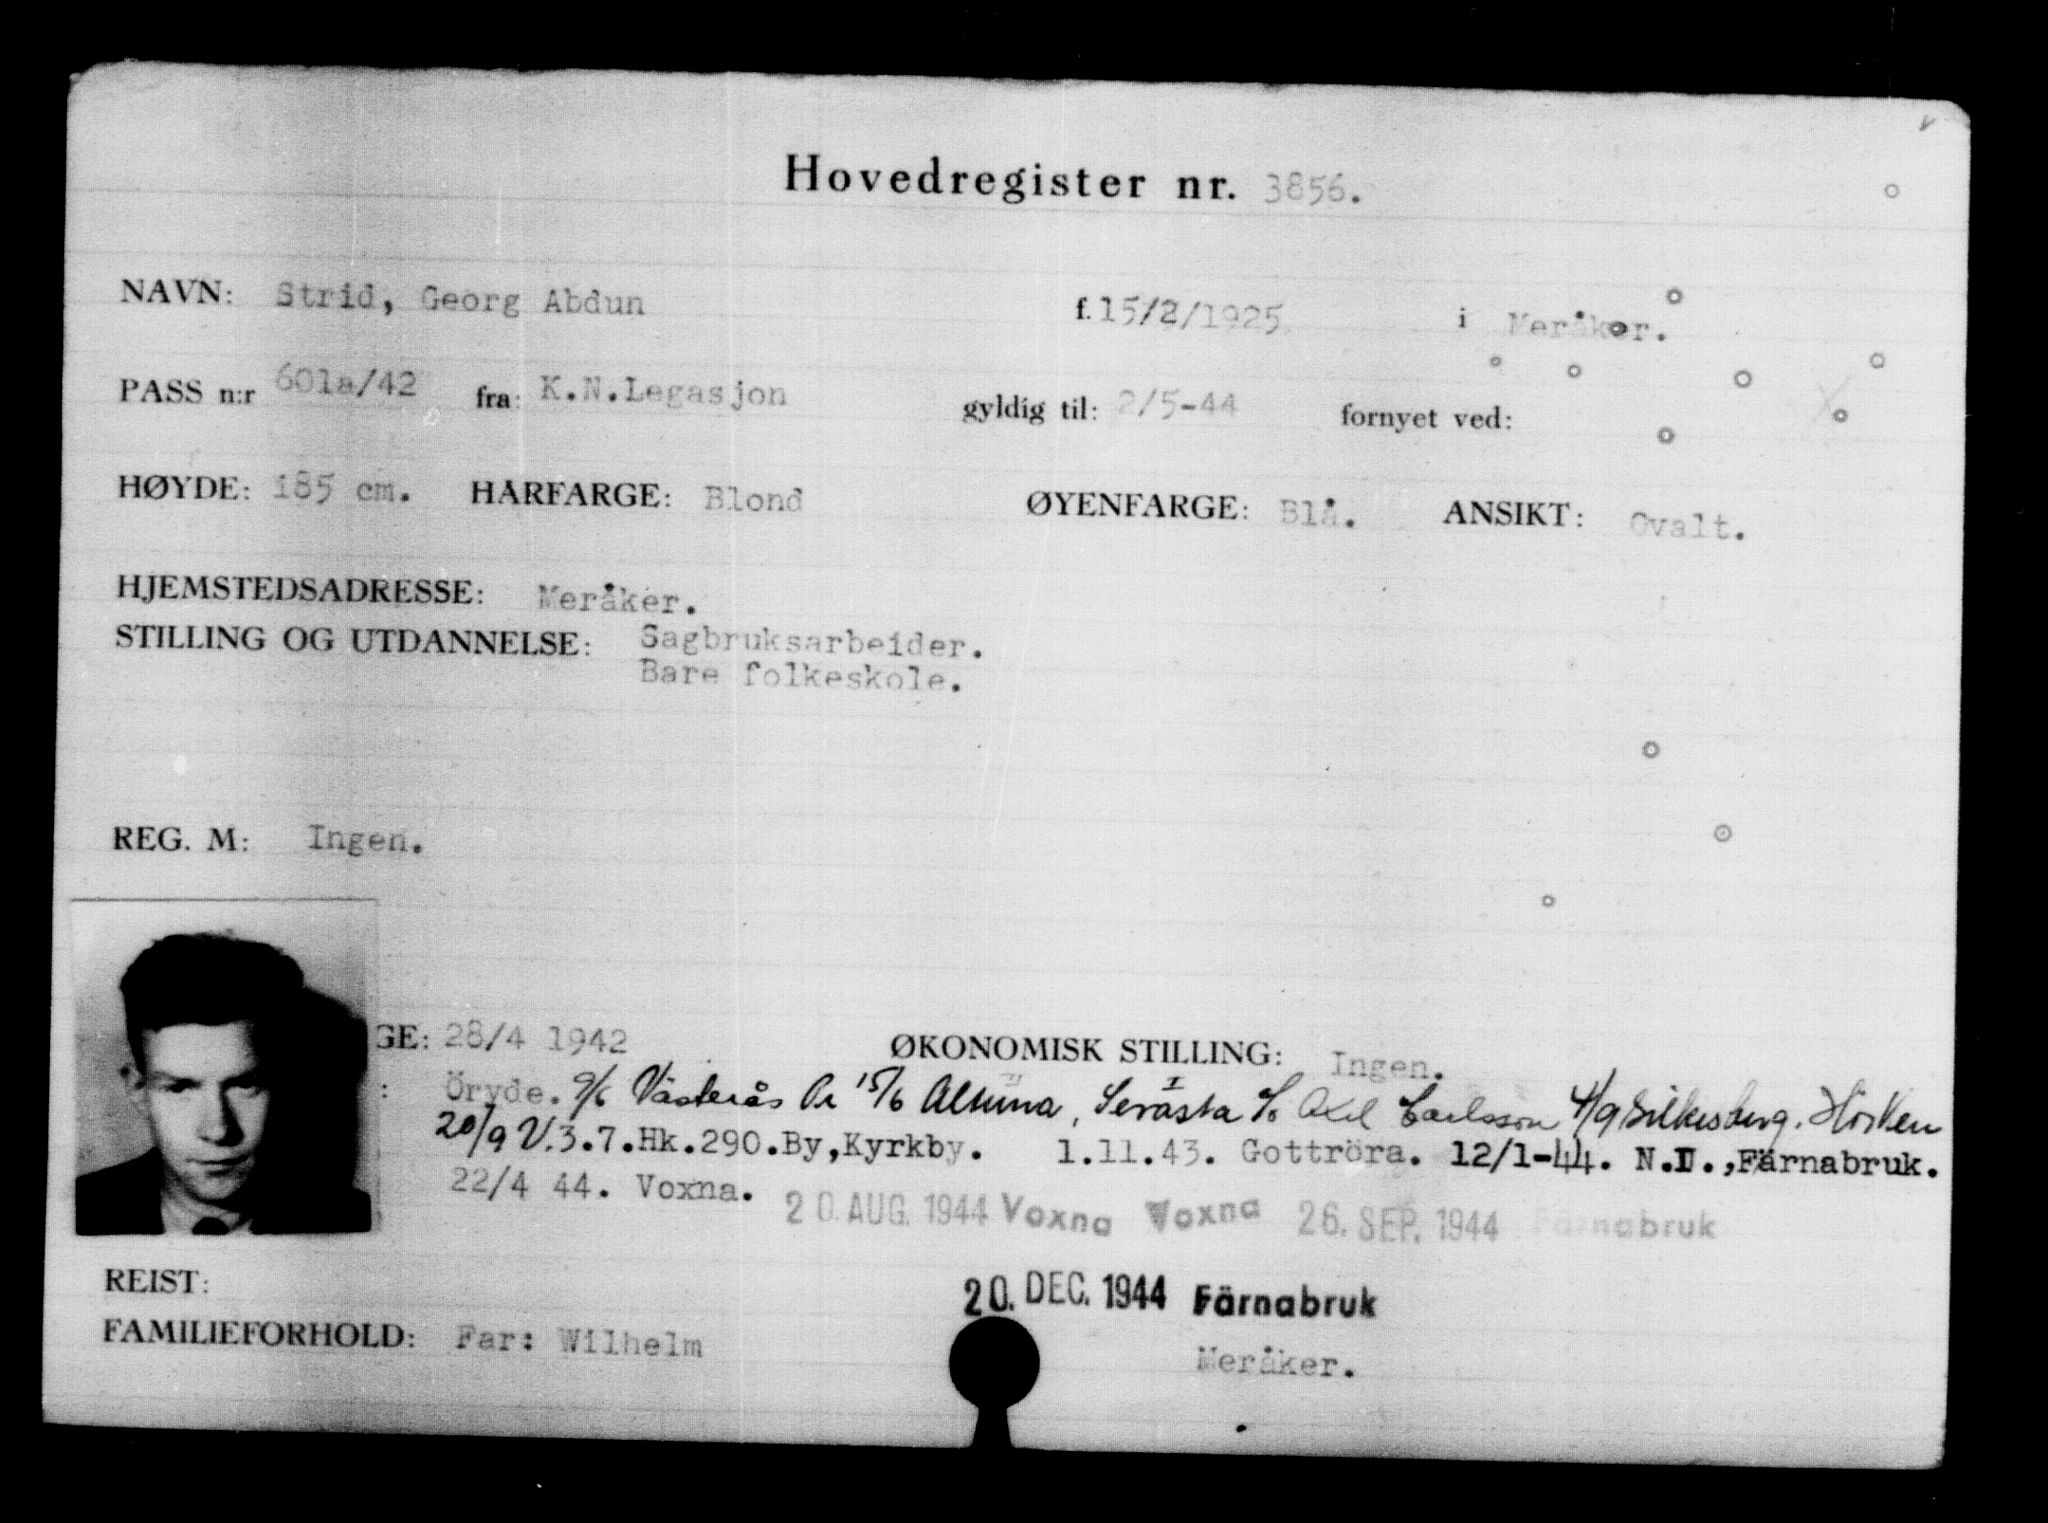 Hovedregister nr. 3856.
NAVN: Strid, Georg Abdun f. 15/2/1925. i Meråker.
PASS n:r 601a/42 fra: K.N.Legasjon gyldig til: 2/5-44 fornyet ved:
HØYDE: 185 cm. HARFARGE: Blond ØYENFARGE: Blå. ANSIKT: Ovalt.
HJEMSTEDSADRESSE: Meråker.
STILLING OG UTDANNELSE: Sagbruksarbeider.
Bare folkeskole.
REG. M: Ingen.
GE: 28/4 1942 ØKONOMISK STILLING: Ingen.
: Öryde. 9/6 Västerås 15/6 Altuna, Axel Carlsson 4/9
20/9 V.3.7.Hk.290.By,Kyrkby. 1.11.43. Gottröra. 12/1-44. N.II.,Färnabruk.
22/4 44. Voxna. 20. AUG. 1944 Voxna Voxna 26. SEP. 1944 Färnabruk
REIST: 20. DEC. 1944 Färnabruk
FAMILIEFORHOLD: Far: Wilhelm Meråker.